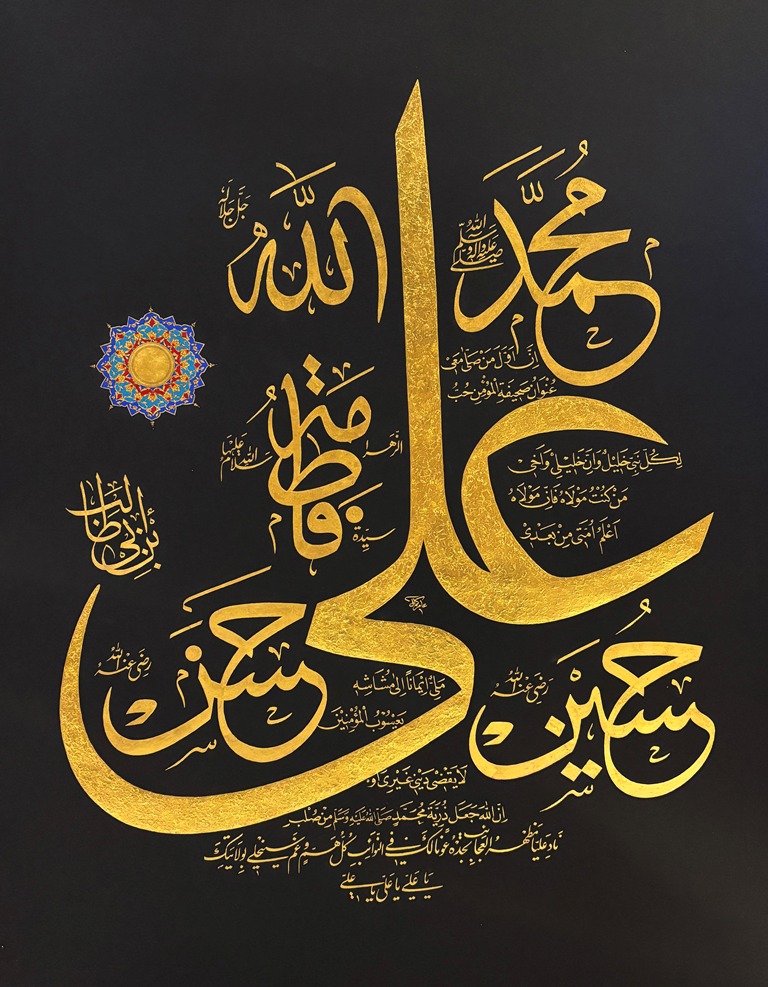 الله
جل جلاله
محمد
صلى الله عليه وآله وسلم
إن أول من صلى معي
عنوان صحيفة المؤمن حب
علي
فاطمة
الزهراء
سيدة
سلام الله عليها
لكل نبي خليل وان خليلي واخي
من كنت مولاه فان مولاه
اعلم امتي من بعدي
بن أبي طالب
حسن
رضي عنه الله
ملئ ايمانا الى مشاشه
يعسوب المؤمنين
حسين
رضي عنه الله
لا يقضي ديني غيري او
ان الله جعل ذرية محمد صلى الله عليه وسلم من صلب
ناد عليا مظهر العجائب تجده عونا لك في النوائب كل هم وغم سينجلي بولايتك
يا علي يا علي يا علي